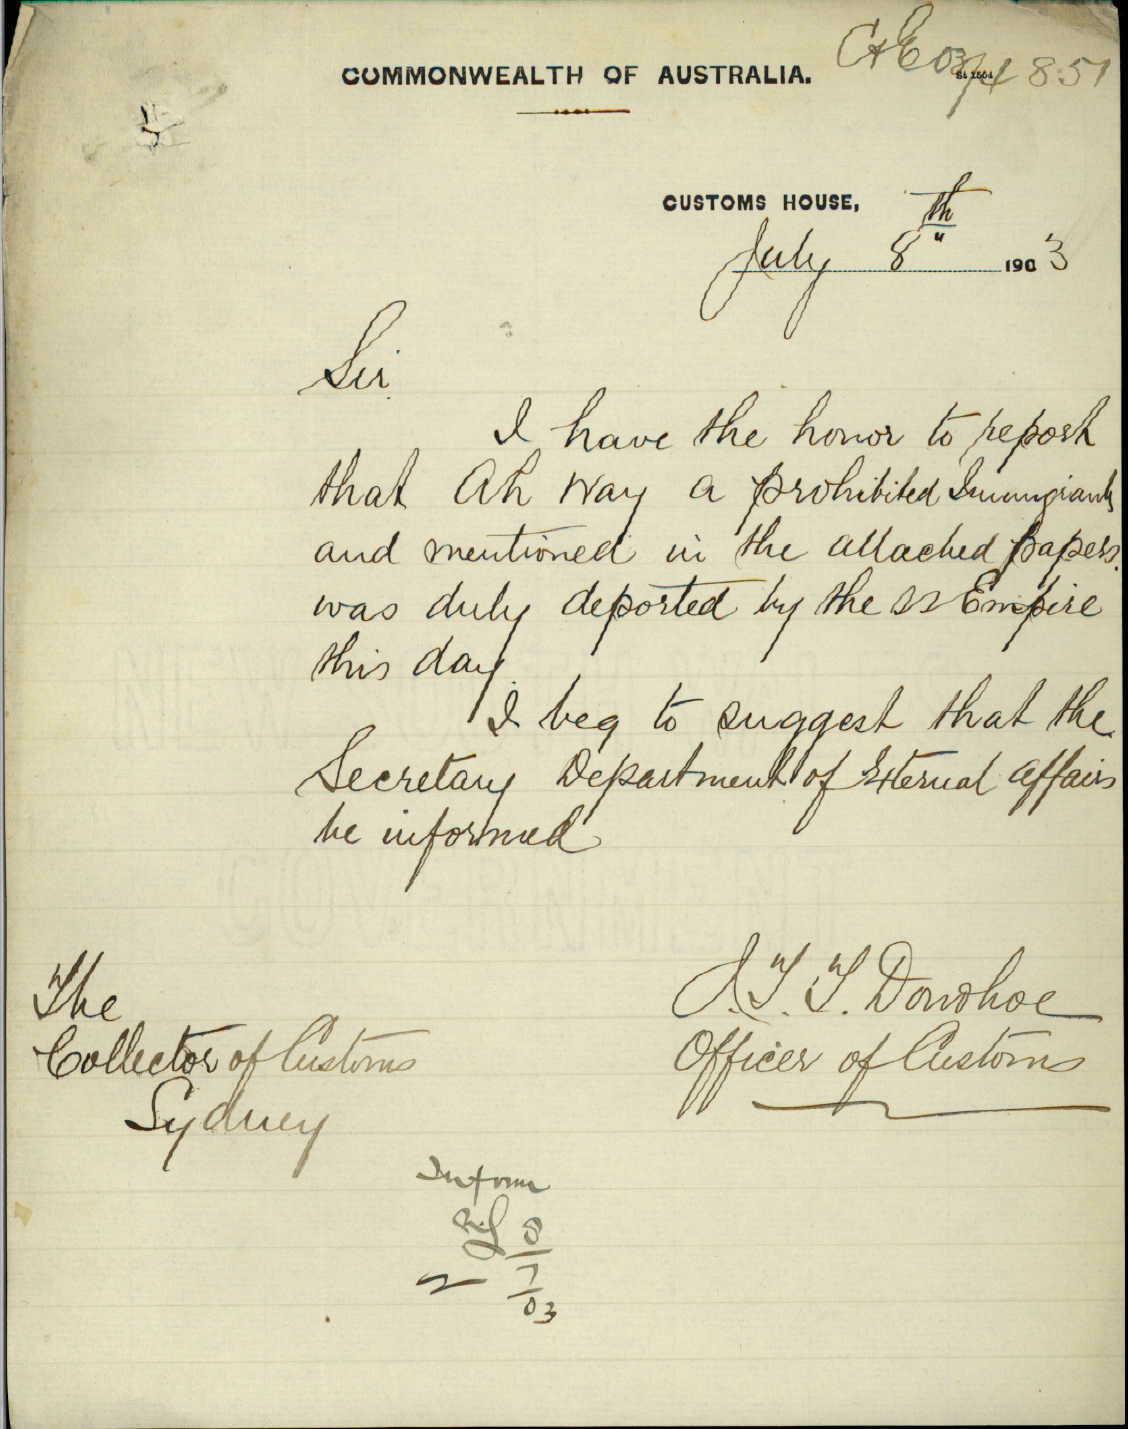 C&E 03/ 851
COMMONWEALTH OF AUSTRALIA.
CUSTOMS HOUSE,
July 8th 1903
Sir
I have the honor to report
that Ah Way a prohibited Immigrant
and mentioned in the attached papers.
was duly deported by the SS Empire
this day.
I beg to suggest that the
Secretary Department of External Affairs
be informed
The
Collector of Customs
Sydney
J.T.T. Donohoe
Officer of Customs
Inform
8
7
03